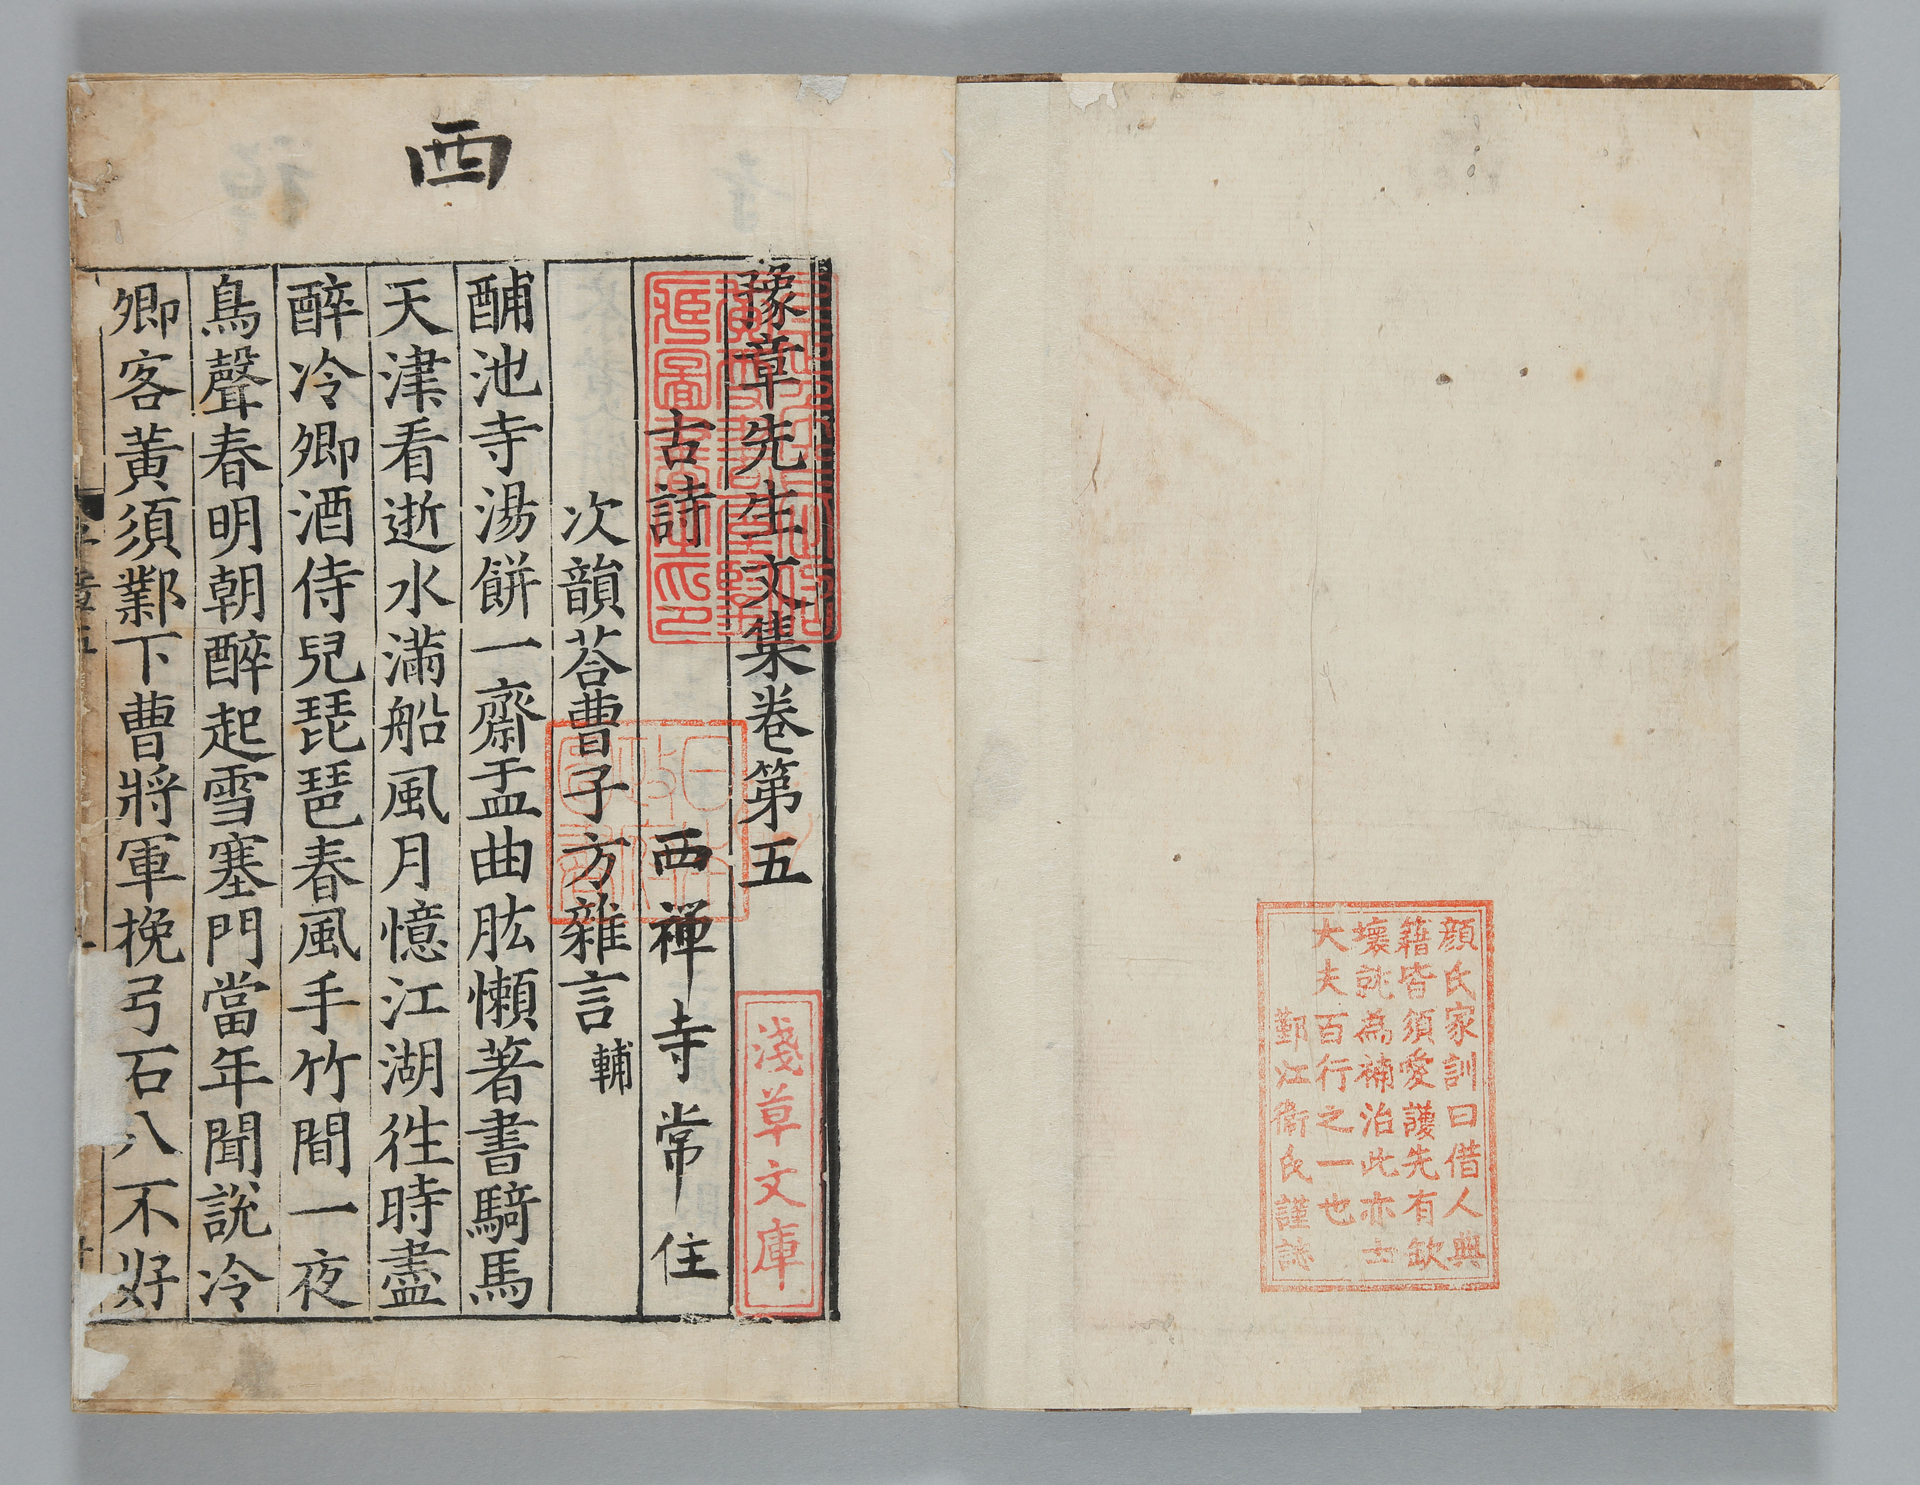 顔氏家訓曰借人典
籍皆須愛護先有缺
壞就為補治此亦士
大夫百行之一也
鄞江衞氏謹誌
西
豫章先生文集卷第五
淺草文庫
古詩
西禅寺常住
次韻荅曹子方雜言輔
酺池寺湯餅一齋盂曲肱懶著書騎馬
天津看逝水滿船風月憶江湖徃時盡
醉冷卿酒侍兒琵琶春風手竹間一夜
鳥聲春明朝醉起雪塞門當年聞說冷
卿客黃須鄴下曹將軍挽弓石八不好